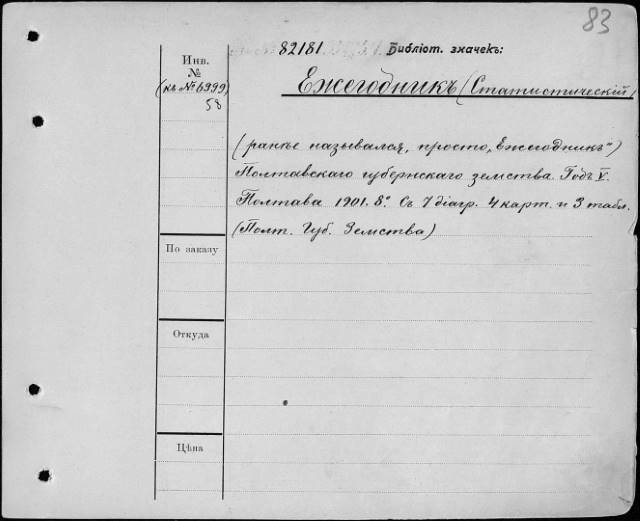 83
82181. Библіот. значекъ:
Инв.
№
(къ № 6999)
58
Ежегодникъ (Статистическій)
(ранѣе назывался, просто „Ежегодникъ")
Полтавскаго губернскаго земства. Годъ V.
Полтава 1901. 8°. Съ 7 діагр. 4 карт. и 3 табл.
(Полт. Губ. Земства)
По заказу
Откуда
Цѣна